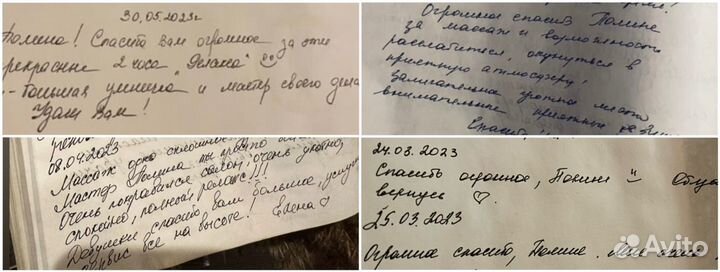 30.05.2023г
Полина! Спасибо вам огромное за эти
прекрасные 2 часа "Релакса"
- большая умница и мастер своего дела
Удачи Вам!
Огромное спасибо Полине
за массаж и возможность
расслабиться, окунуться в
приятную атмосферу!
Замечательная уютная место
внимательные приятные
Спасибо!!!
08.04.2023
Массаж одно сплошное
Мастер Полина ты просто
Очень понравился салон, очень уютно,
спокойно, полный релакс!!!
Девушки спасибо вам большое, услуги
сервис все на высоте! Елена
24.03.2023
Спасибо огромное, Полине
вернусь
25.03.2023
Огромное спасибо, Полине.
Avito